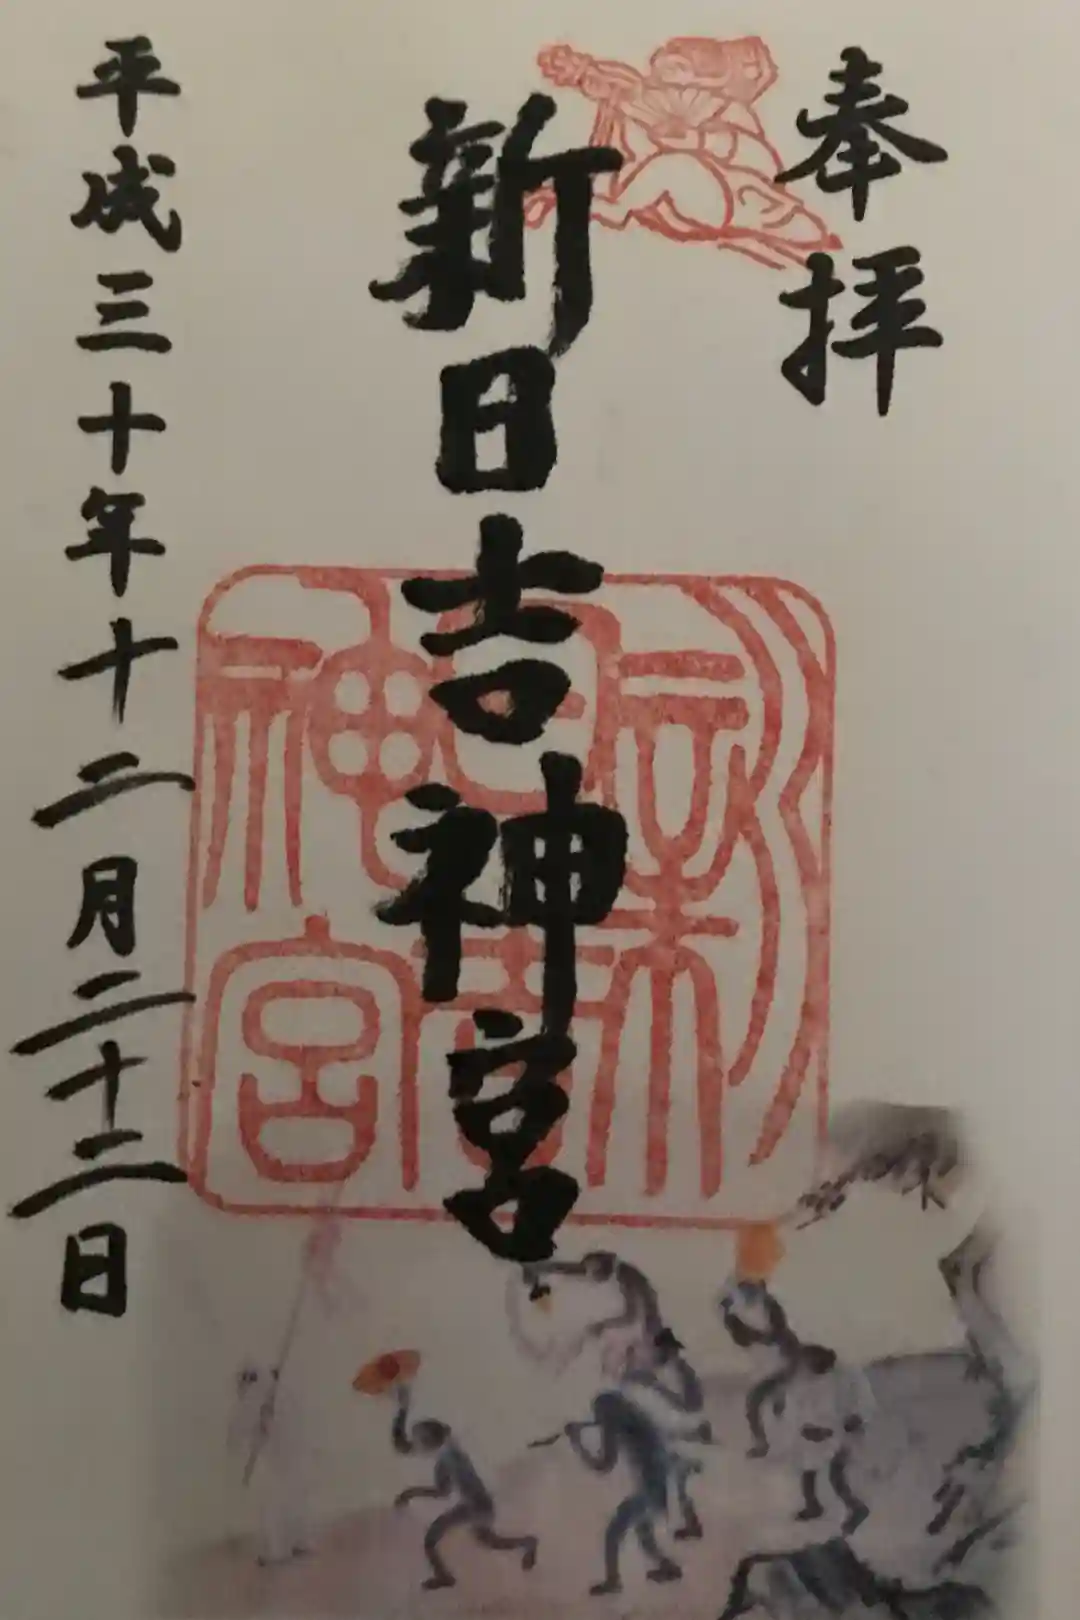 奉拝
新日吉神宮
平成三十年十二月二十二日
新日吉神宮